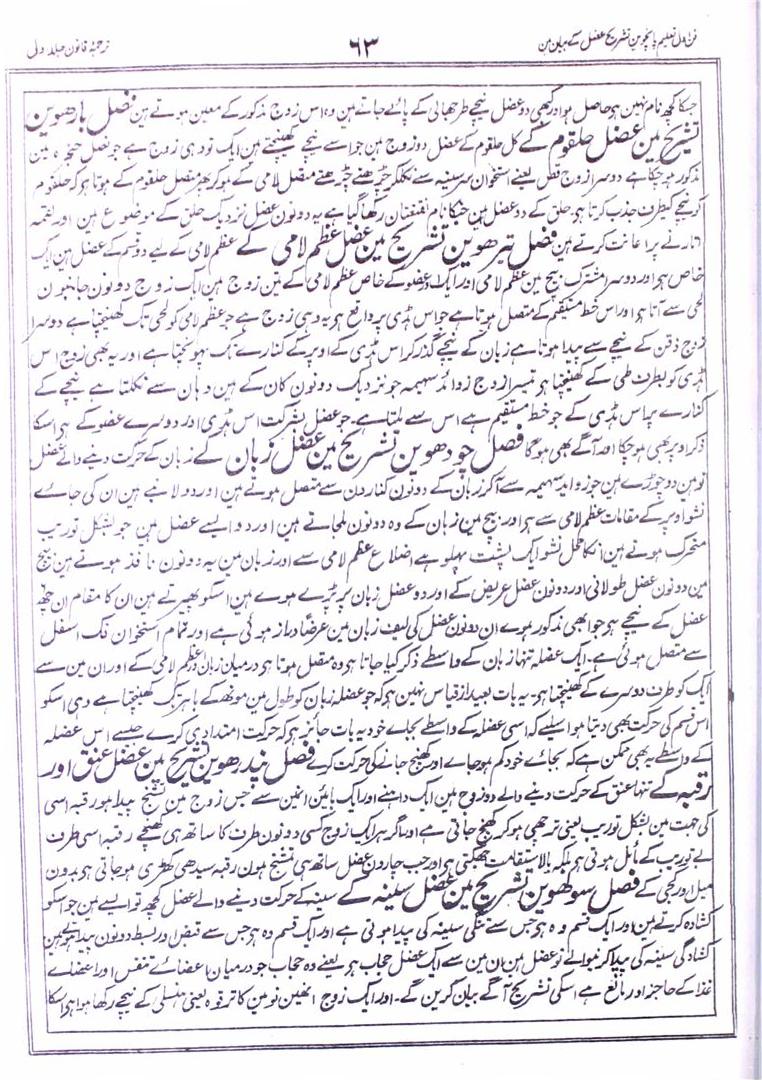 فن اول تعلیم پانچوین تشریح عضل کے بیان مین ۶۳ ترجمۂ قانون جلد اول
جسکا کچھ نام نہین ہے حاصل ہوا اور کبھی دو عضل نیچے طرجھالی کے پائے جاتے مین وہ اس زوج مذکور کے معین ہوتے ہین فصل بارھوین
تشریح مین عضل حلقوم کے کل حلقوم کے عضل دو زوج ہین جو اسے نیچے کھینچتے ہین ایک تو دہی زوج ہے جو فصل حنجرہ مین
مذکور ہو چکا ہے دوسرا زوج قص یعنے استخوان سر سینہ سے نکلکر چڑھتے چڑھتے متصل لامی کے ہو کر پھر متصل حلقوم کے ہوتا ہے کہ حلقوم
کو نیچے کیطرف جذب کرتا ہے حلق کے دو عضل ہین جنکا نام نغنغتان رکھا گیا ہے یہ دونون عضل نزدیک حلق کے موضوع ہین اور لقمہ
اتارنے پر اعانت کرتے ہین فصل تیرھوین تشریح مین عضل عظم لامی کے عظم لامی کے لیے دو قسم کے عضل ہین ایک
خاص ہے اور دوسرا مشترک بیچ مین عظم لامی اور ایک اور عضو کے خاص عظم لامی کے تین زوج ہین ایک زوج دونون جانبون
لحی سے آتا ہے اور اس خط مستقیم کے متصل ہوتا ہے جو اس ہڈی پر واقع ہے یہ وہی زوج ہے جو عظم لامی کو لحی تک کھینچتا ہے دوسرا
زوج ذقن کے نیچے سے پیدا ہوتا ہے زبان کے نیچے گذر کر اس ہڈی کے اوپر کے کنارے تک پہونچتا ہے اور یہ بھی زوج اس
ہڈی کو بطرف لحی کے کھینچتا ہے تیسرا زوج زوائد سہمیہ جو نزدیک دونون کان کے ہین وہان سے نکلتا ہے نیچے کے
کنارے پر اس ہڈی کے جو خط مستقیم ہے اس سے ملتا ہے۔ جو عضل بشرکت اس ہڈی اور دوسرے عضو کے ہے اسکا
ذکر اوپر بھی ہو چکا اور آگے بھی ہو گا فصل چودھوین تشریح مین عضل زبان کے زبان کے حرکت دینے والے عضل
نو ہین دو چوڑے ہین جو زوائد سہمیہ سے آ کر زبان کے دونون کنارون سے متصل ہوتے ہین اور دو لانبے ہین ان کی جائے
نشو اوپر کے مقامات عظم لامی سے ہے اور بیچ مین زبان کے وہ دونون ملجاتے ہین اور دو ایسے عضل ہین جو بشکل توریب
متحرک ہوتے ہین انکا محل نشو ایک پست پہلو ہے اضلاع عظم لامی سے اور زبان مین یہ دونون نافذ ہوتے ہین بیچ
مین دونون عضل طولانی اور دونون عضل عریض کے اور دو عضل زبان کو پٹے ہوے ہین اسکو پھیرتے ہین ان کا مقام ان چھ
عضل کے نیچے ہے جو ابھی مذکور ہوے ان دونون عضل کی لیف زبان مین عرضاً دراز ہوئی ہے اور تمام استخوان فک اسفل
سے متصل ہوئی ہے۔ ایک عضلہ تنہا زبان کے واسطے ذکر کیا جاتا ہے وہ متصل ہوتا ہے درمیان زبان و عظم لامی کے اور ان مین سے
ایک کو طرف دوسرے کے کھینچتا ہے۔ یہ بات بعید از قیاس نہین ہے کہ جو عضلہ زبان کو طول مین مونھ کے باہر تک کھینچتا ہے وہی اسکو
اس قسم کی حرکت بھی دیتا ہو اسلیے کہ اسی عضلہ کے واسطے بجاے خود یہ بات جائز ہے کہ حرکت امتدادی کرے جیسے اس عضلہ
کے واسطے یہ بھی ممکن ہے کہ بجاے خود کم ہو جاے اور کھنچ جانے کی حرکت کرے فصل پندرھوین تشریح مین عضل عنق اور
رقبہ کے تنہا عنق کے حرکت دینے والے دو زوج ہین ایک داہنے اور ایک بائین انمین سے جس زوج مین تشنج پیدا ہو رقبہ اسی
کی جہت مین بشکل توریب یعنی ترچھی ہو کر کھنچ جاتی ہے اور اگر ہر ایک زوج کسی دونون طرف کا ساتھ ہی کھنچے رقبہ اسی طرف
بے توریب کے مائل ہوتی ہے بلکہ بالاستقامت جھکتی ہے اور جب چارون عضل ساتھ ہی متشنج ہون رقبہ سیدھی کھڑی ہو جاتی ہے بدون
میل اور کجی کے فصل سولھوین تشریح مین عضل سینہ کے سینہ کے حرکت دینے والے عضل کچھ تو ایسے ہین جو اسکو
کشادہ کرتے ہین اور ایک قسم وہ ہے جس سے تنگی سینہ کی پیدا ہوتی ہے اور ایک قسم وہ ہے جس سے قبض اور بسط دونون پیدا ہوتے ہین
کشادگی سینہ کی پیدا کرنیوالے نو عضل ہین ان مین سے ایک عضل حجاب ہے یعنے وہ حجاب جو درمیان اعضاے تنفس اور اعضاے
غذا کے حاجز اور مانع ہے اسکی تشریح آگے بیان کرین گے۔ اور ایک زوج انھین نو مین کا ترقوہ یعنی ہنسلی کے نیچے رکھا ہوا ہے اسکا